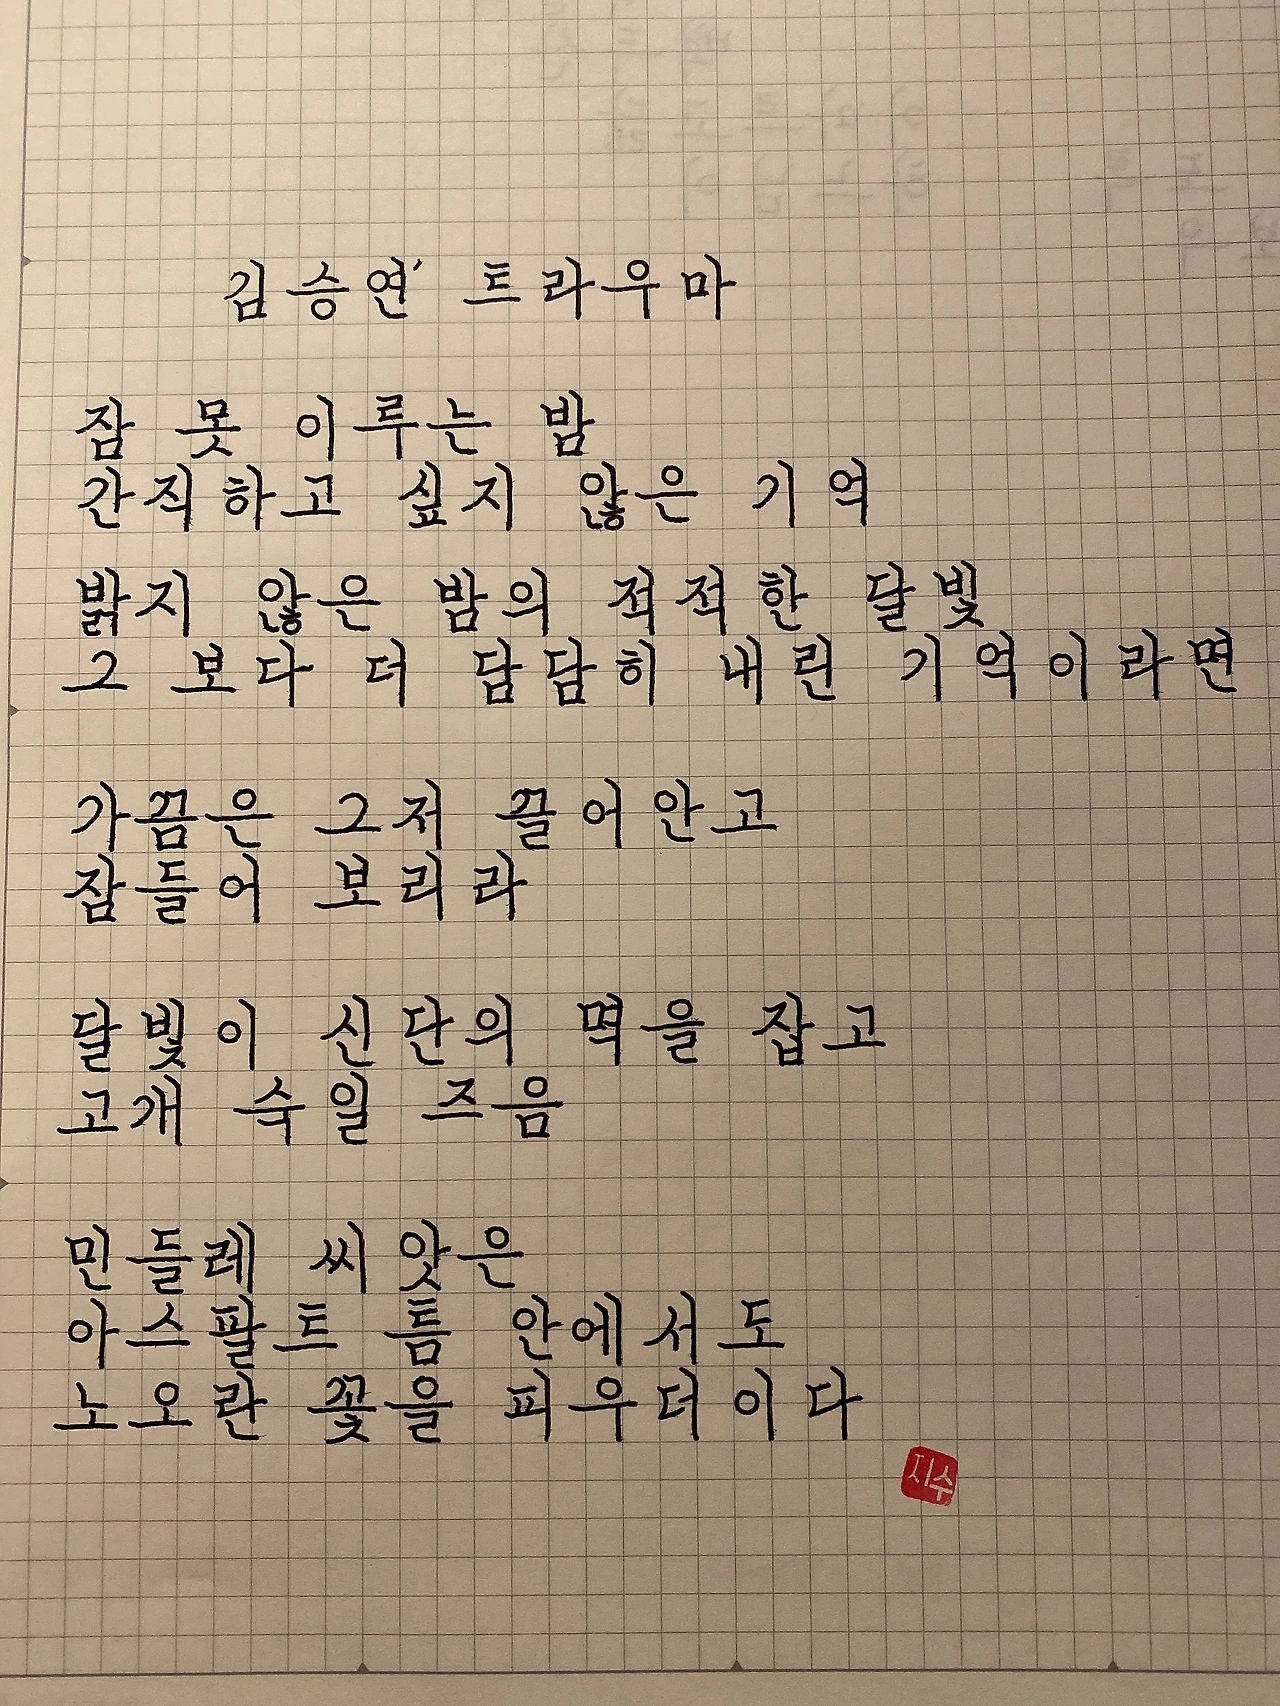 김승연' 트라우마
잠 못 이루는 밤
간직하고 싶지 않은 기억
밝지 않은 밤의 적적한 달빛
그 보다 더 담담히 내린 기억이라면
가끔은 그저 끌어안고
잠들어 보리라
달빛이 신단의 멱을 잡고
고개 숙일 즈음
민들레 씨앗은
아스팔트 틈 안에서도
노오란 꽃을 피우더이다
지수